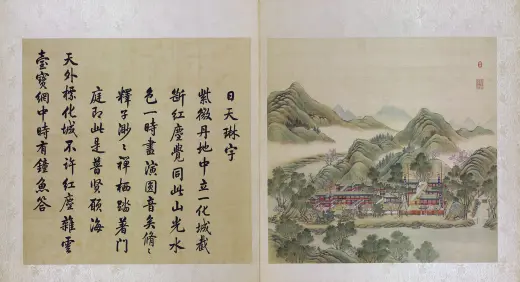 日天琳宇
紫微丹地中立一化城截
斷紅塵覺同此山光水
色一時盡演圓音矣脩〻
釋子渺〻禪栖踏著門
庭即此是普賢願海
天外標化城不許紅塵雜雲
臺寶網中時有鐘魚答